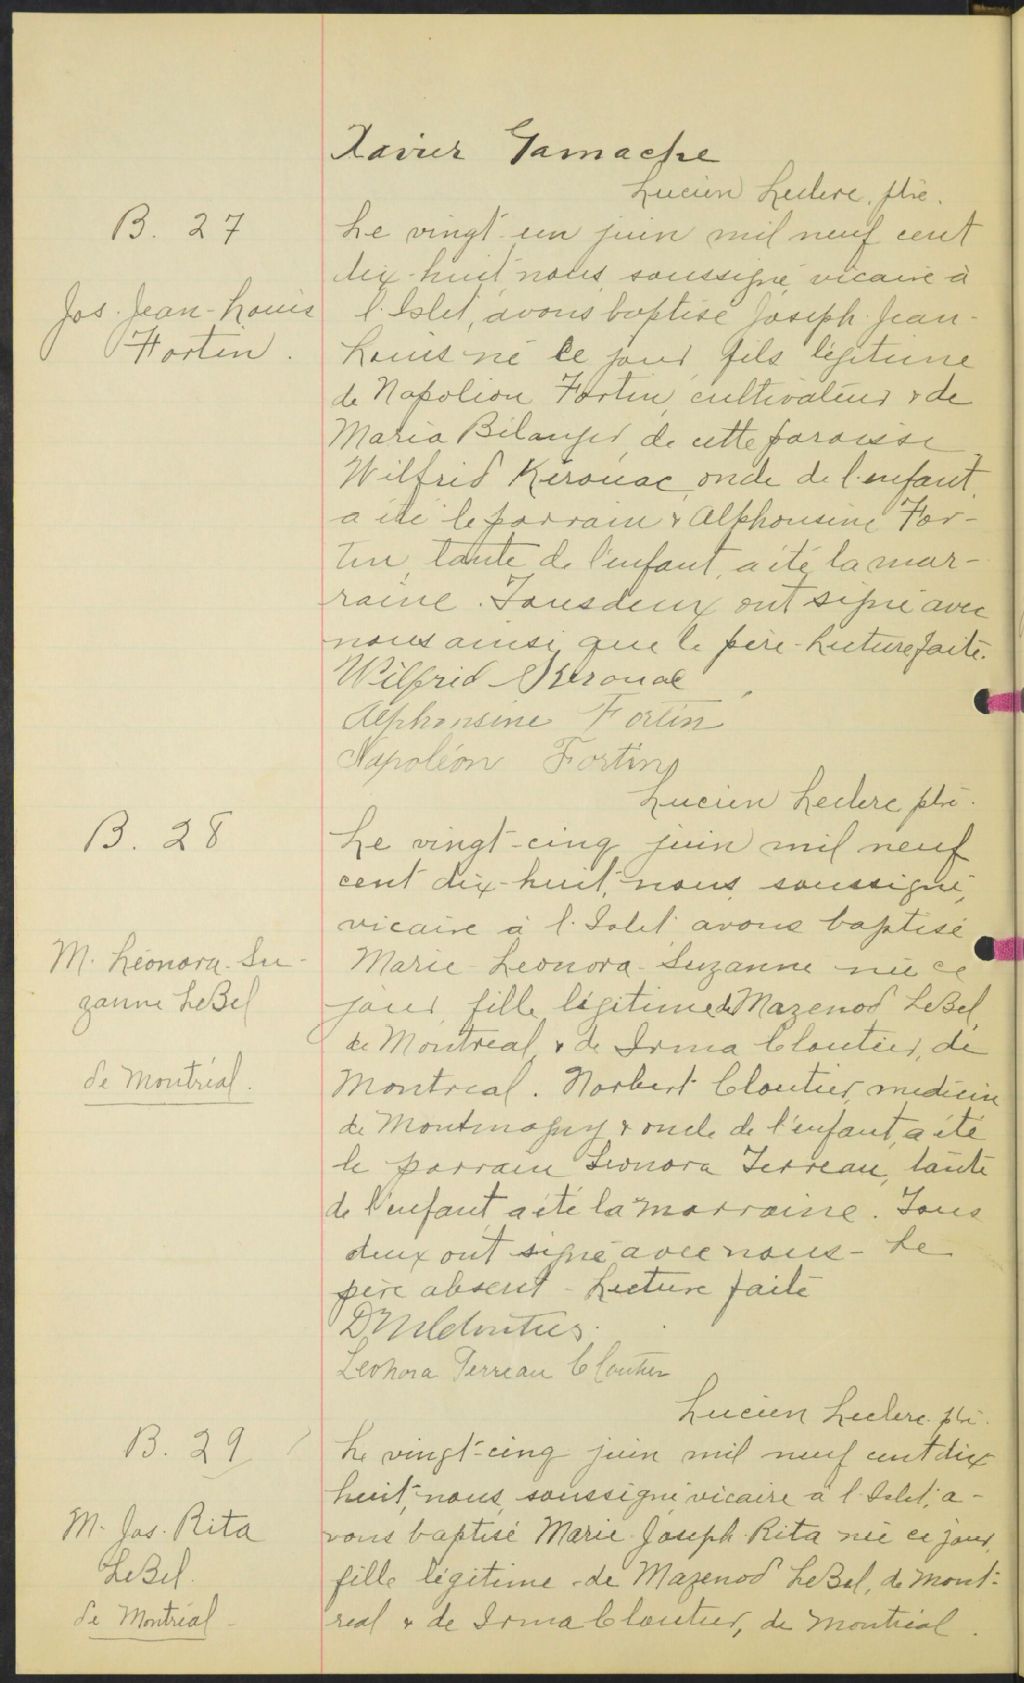 Xavier Gamache
Lucien Leclerc, ptre.
B. 27
Jos. Jean-Louis
Fortin.
Le vingt-un juin mil neuf cent
dix-huit, nous, soussigné, vicaire à
l'Islet, avons baptisé Joseph-Jean-
Louis né le jour, fils légitime
de Napoléon Fortin, cultivateur & de
Maria Bélanger, de cette paroisse.
Wilfrid Kérouac, oncle de l'enfant,
a été le parrain & Alphonsine For-
tin, tante de l'enfant, a été la mar-
raine. Tous deux ont signé avec
nous ainsi que le père - Lecture faite.
Wilfrid Kerouac
Alphonsine Fortin
Napoléon Fortin
Lucien Leclerc ptre.
B. 28
M. Léonora-Su-
zanne LeBel
de Montréal.
Le vingt-cinq juin mil neuf
cent dix-huit, nous, soussigné,
vicaire à l'Islet avons baptisé
Marie-Leonora-Suzanne née ce
jour, fille légitime de Mazenod LeBel,
de Montréal, & de Irma Cloutier, de
Montréal. Norbert Cloutier, médecin
de Montmagny & oncle de l'enfant, a été
le parrain Leonora Terreau, tante
de l'enfant, a été la marraine. Tous
deux ont signé avec nous - Le
père absent - Lecture faite
Dr N Cloutier.
Leonora Terreau Cloutier
Lucien Leclerc ptre.
B. 29
M. Jos. Rita
LeBel.
de Montréal
Le vingt-cinq juin mil neuf cent dix
huit, nous, soussigné vicaire à l'Islet, a-
vons baptisé Marie-Joseph-Rita née ce jour,
fille légitime de Mazenod LeBel, de Mont-
réal & de Irma Cloutier, de Montréal.